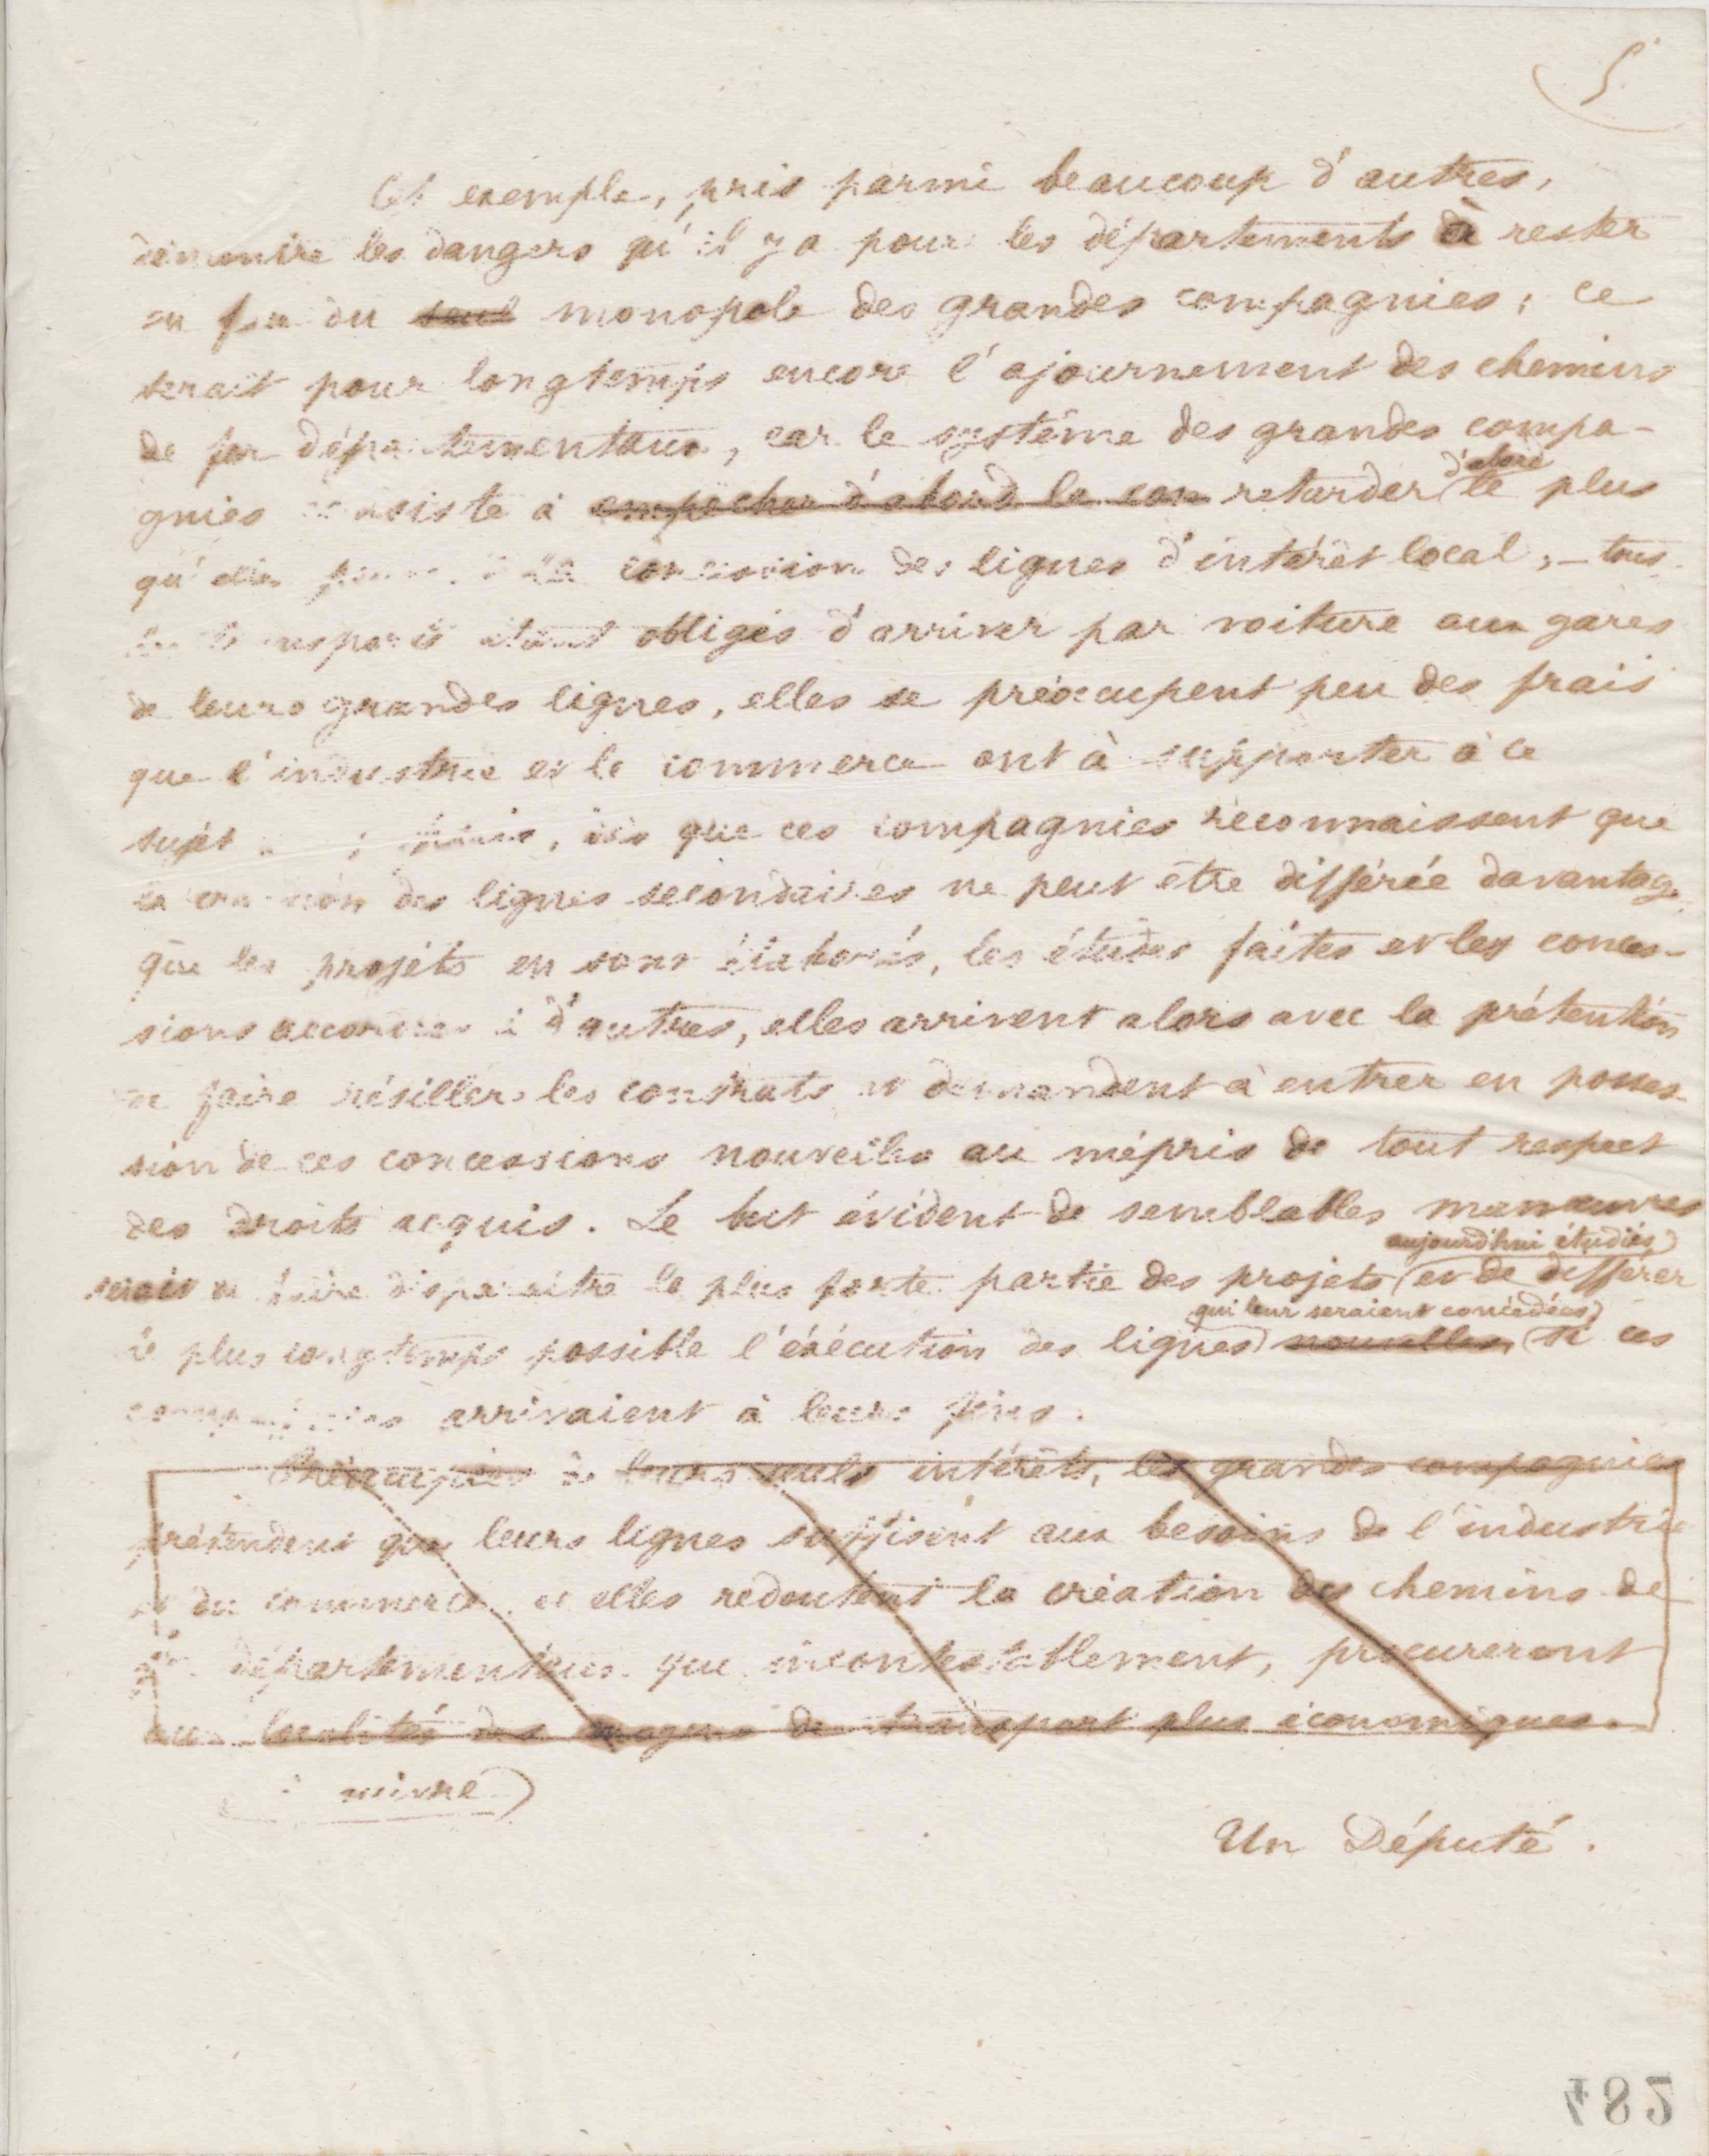 5
Cet exemple, pris parmi beaucoup d'autres,
démontre les dangers qu'il y a pour les départements à rester
du seul monopole des grandes compagnies; ce
serait pour longtemps encore l'ajournement des chemins
de fer départementaux, car le système des grandes compa-
d'abord
gnies consiste à empêcher d'abord la con retarder le plus
qu'elles concession des lignes d'intérêt local, — tous
transports étant obligés d'arriver par voiture aux gares
de leurs grandes lignes, elles se préoccupent peu des frais
que l'industrie et le commerce ont à supporter à ce
sujet , dès que ces compagnies reconnaissent que
la création des lignes secondaires ne peut être différée davantage
que les projets en sont élaborés, les études faites et les conces-
sions accordées à d'autres, elles arrivent alors avec la prétention
de faire résilier les contrats et demandent à entrer en posses-
sion de ces concessions nouvelles au mépris de tout respect
des droits acquis. Le but évident de semblables manœuvres
aujourd'hui étudiés
serait de faire disparaitre la plus forte partie des projets et de différer
qui leur seraient concédées
le plus longtemps possible l'éxécution des lignes nouvelles si ces
compagnies arrivaient à leurs fins.
Préoccupées de leurs seuls intérêts, les grandes compagnies
prétendent que leurs lignes suffisent aux besoins de l'industrie
et du commerce et elles redoutent la création des chemins de
fer départementaux que incontestablement, procureront
aux localités des moyens de transport plus économiques.
à suivre)
Un Député.
482